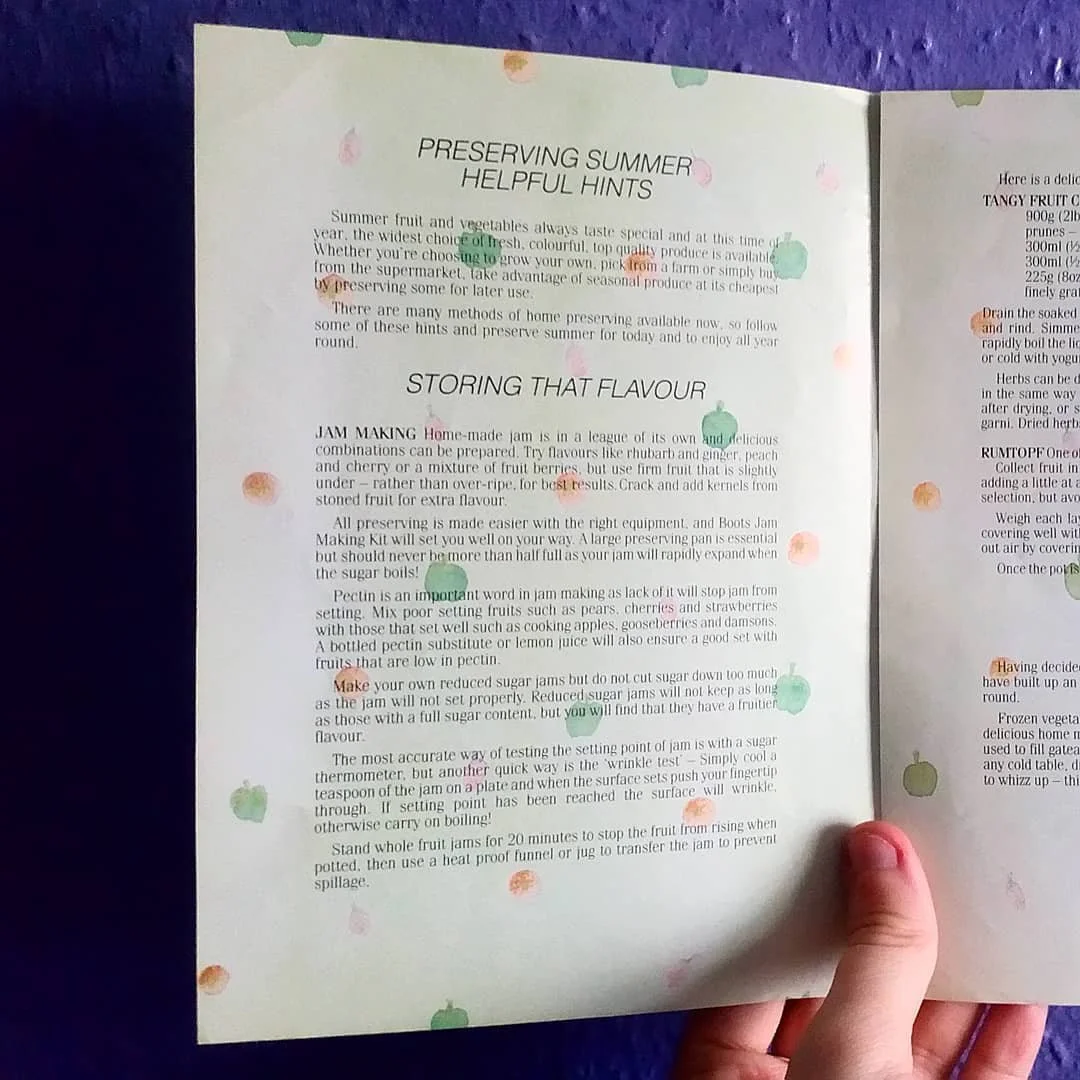 PRESERVING SUMMER
HELPFUL HINTS
Summer fruit and vegetables always taste special and at this time of
year, the widest choice of fresh, colourful, top quality produce is available.
Whether you're choosing to grow your own, pick from a farm or simply buy
from the supermarket, take advantage of seasonal produce at its cheapest
by preserving some for later use.
There are many methods of home preserving available now, so follow
some of these hints and preserve summer for today and to enjoy all year
round.
STORING THAT FLAVOUR
JAM MAKING Home-made jam is in a league of its own and delicious
combinations can be prepared. Try flavours like rhubarb and ginger, peach
and cherry or a mixture of fruit berries, but use firm fruit that is slightly
under – rather than over-ripe, for best results. Crack and add kernels from
stoned fruit for extra flavour.
All preserving is made easier with the right equipment, and Boots Jam
Making Kit will set you well on your way. A large preserving pan is essential
but should never be more than half full as your jam will rapidly expand when
the sugar boils!
Pectin is an important word in jam making as lack of it will stop jam from
setting. Mix poor setting fruits such as pears, cherries and strawberries
with those that set well such as cooking apples, gooseberries and damsons.
A bottled pectin substitute or lemon juice will also ensure a good set with
fruits that are low in pectin.
Make your own reduced sugar jams but do not cut sugar down too much
as the jam will not set properly. Reduced sugar jams will not keep as long
as those with a full sugar content, but you will find that they have a fruitier
flavour.
The most accurate way of testing the setting point of jam is with a sugar
thermometer, but another quick way is the 'wrinkle test' – Simply cool a
teaspoon of the jam on a plate and when the surface sets push your fingertip
through. If setting point has been reached the surface will wrinkle,
otherwise carry on boiling!
Stand whole fruit jams for 20 minutes to stop the fruit from rising when
potted, then use a heat proof funnel or jug to transfer the jam to prevent
spillage.
Here is a delic
TANGY FRUIT C
900g (2lb
prunes –
300ml (½
300ml (½
225g (8oz
finely gra
Drain the soaked
and rind. Simme
rapidly boil the li
or cold with yogu
Herbs can be d
in the same way
after drying, or s
garni. Dried herb
RUMTOPF One of
Collect fruit in
adding a little at a
selection, but avo
Weigh each lay
covering well wit
out air by coverin
Once the pot is
Having decide
have built up an
round.
Frozen vegeta
delicious home m
used to fill gatea
any cold table, d
to whizz up – thi